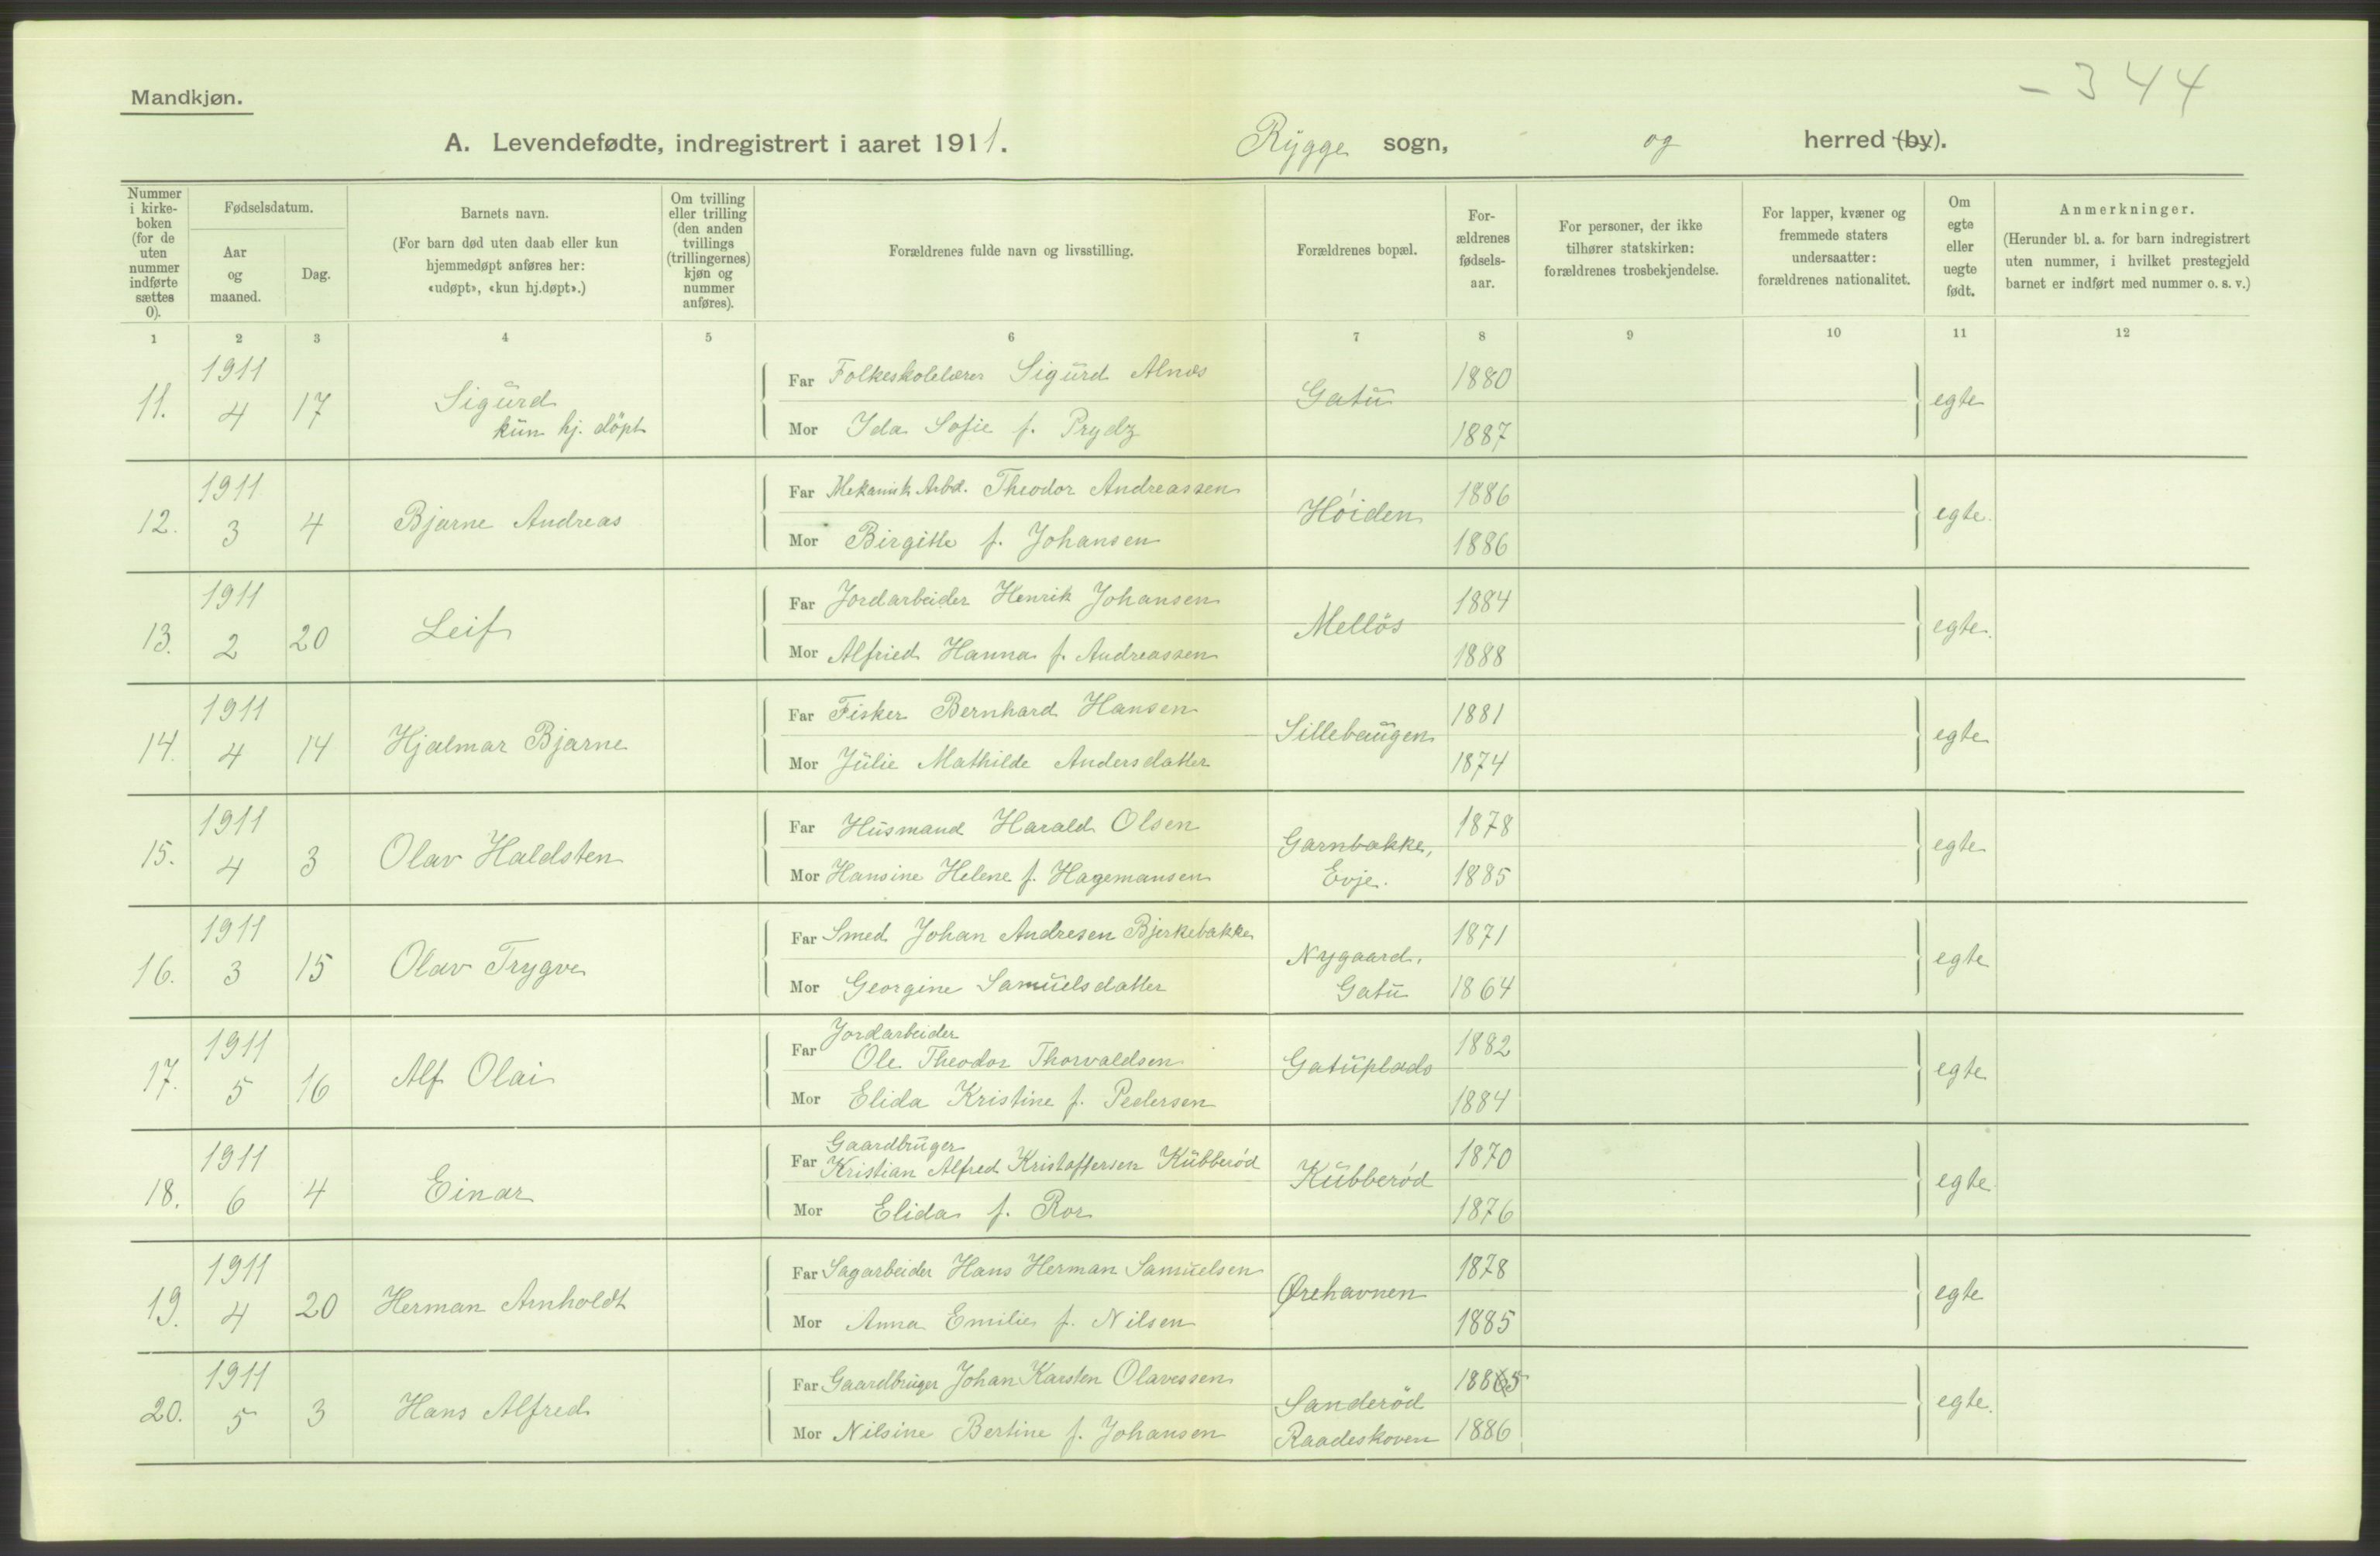 - 344
Mandkjøn.
A. Levendefødte, indregistrert i aaret 1911. Rygge sogn, og herred (by).
Nummer i kirke-boken (for de uten nummer indførte sættes 0).
Fødselsdatum.
Aar og maaned.
Dag.
Barnets navn.
(For barn død uten daab eller kun hjemmedøpt anføres her: «udøpt», «kun hj.døpt».)
Om tvilling eller trilling (den anden tvillings (trillingernes) kjøn og nummer anføres).
Forældrenes fulde navn og livsstilling.
Forældrenes bopæl.
For-ældrenes fødsels-aar.
For personer, der ikke tilhører statskirken: forældrenes trosbekjendelse.
For lapper, kvæner og fremmede staters undersaatter: forældrenes nationalitet.
Om egte eller uegte født.
Anmerkninger.
(Herunder bl. a. for barn indregistrert uten nummer, i hvilket prestegjeld barnet er indført med nummer o. s. v.)
1 2 3 4 5 6 7 8 9 10 11 12
11. 1911 4 17 Sigurd kun hj. döpt
Far Folkeskolelærer Sigurd Alnæs Gatu 1880 egte
Mor Ida Sofie f. Prydz 1887
12. 1911 3 4 Bjarne Andreas
Far Mekanisk Arbd. Theodor Andreassen Høiden 1886 egte.
Mor Birgitte f. Johansen 1886
13. 1911 2 20 Leif
Far Jordarbeider Henrik Johansen Mellös 1884 egte.
Mor Alfried Hanna f. Andreassen 1888
14. 1911 4 14 Hjalmar Bjarne
Far Fisker Bernhard Hansen Sillebaugen 1881 egte
Mor Julie Mathilde Andersdatter 1874
15. 1911 4 3 Olav Haldsten
Far Husmand Harald Olsen Garnbakke, Evje. 1878 egte
Mor Hansine Helene f. Hagemansen 1885
16. 1911 3 15 Olav Trygve
Far Smed Johan Andresen Bjerkebakke Nygaard, Gatu 1871 egte
Mor Georgine Samuelsdatter 1864
17. 1911 5 16 Alf Olai
Far Jordarbeider Ole Theodor Thorvaldsen Gatuplads 1882 egte
Mor Elida Kristine f. Pedersen 1884
18. 1911 6 4 Einar
Far Gaardbruger Kristian Alfred Kristoffersen Kubberød Kubberød 1870 egte
Mor Elida f. Ror 1876
19. 1911 4 20 Herman Arnholdt
Far Sagarbeider Hans Herman Samuelsen Ørehavnen 1878 egte
Mor Anna Emilie f. Nilsen 1885
20. 1911 5 3 Hans Alfred
Far Gaardbruger Johan Karsten Olavessen Sanderöd Raadeskoven 1885 egte.
Mor Nilsine Bertine f. Johansen 1886